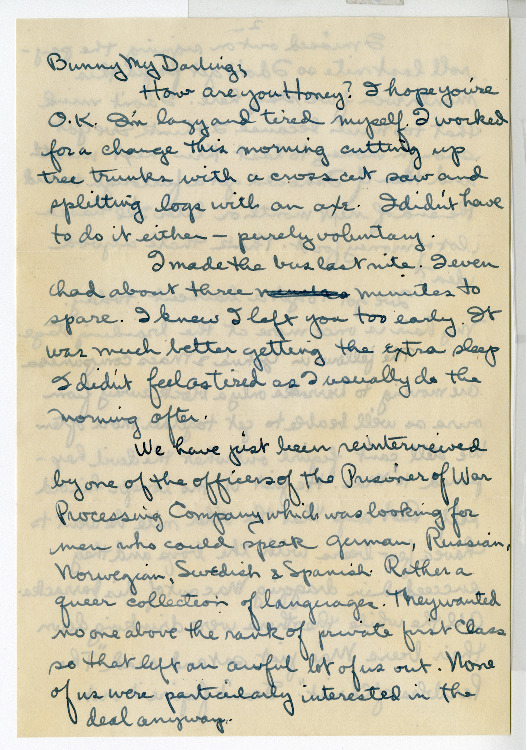 Bunny My Darling;
How are you Honey? I hope you're
O.K. I'm lazy and tired myself. I worked
for a change this morning cutting up
tree trunks with a cross cut saw and
splitting logs with an axe. I didn't have
to do it either — purely voluntary.
I made the bus last nite. I even
had about three minutes to
spare. I knew I left you too early. It
was much better getting the extra sleep
I didn't feel as tired as I usually do the
morning after.
We have just been reinterviewed
by one of the officers of the Prisoner of War
Processing Company which was looking for
men who could speak German, Russian,
Norwegian, Swedish & Spanish. Rather a
queer collection of languages. They wanted
no one above the rank of private first class
so that left an awful lot of us out. None
of us were particularly interested in the
deal anyway.